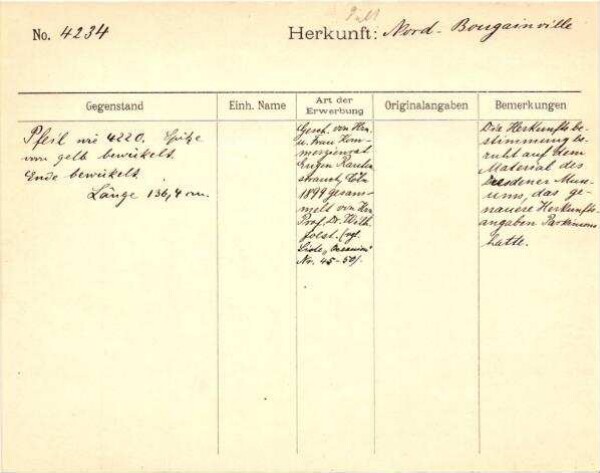 No. 4234
Herkunft: Nord-Bougainville
Gegenstand
Einh. Name
Art der
Erwerbung
Originalangaben
Bemerkungen
Pfeil wie 4220. Spitze
von gelb bewickelt.
Ende bewickelt.
Länge 136,4 cm.
Gesch. von Hrn.
u. Frau Kom-
merzienrat
Eugen Rauten-
strauch, Cöln
1899 gesam-
melt von Hrn.
Prof. Dr. Wilh.
Joest. (vgl.
Liste "Oceanien"
Nr. 45-50).
Die Herkunftsbe-
stimmung be-
ruht auf dem
Material des
Dresdener Muse-
ums, das ge-
nauere Herkunfts-
angaben Parkinsons
hatte.